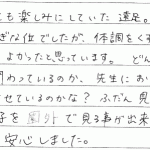 も楽しみにしていた遠足。
ぎな位でしたが、体調をくず
よかったと思っています。 どん
関わっているのか、先生にお
させているのかな？ふだん見
子を園外で見る事が出来
安心しました。